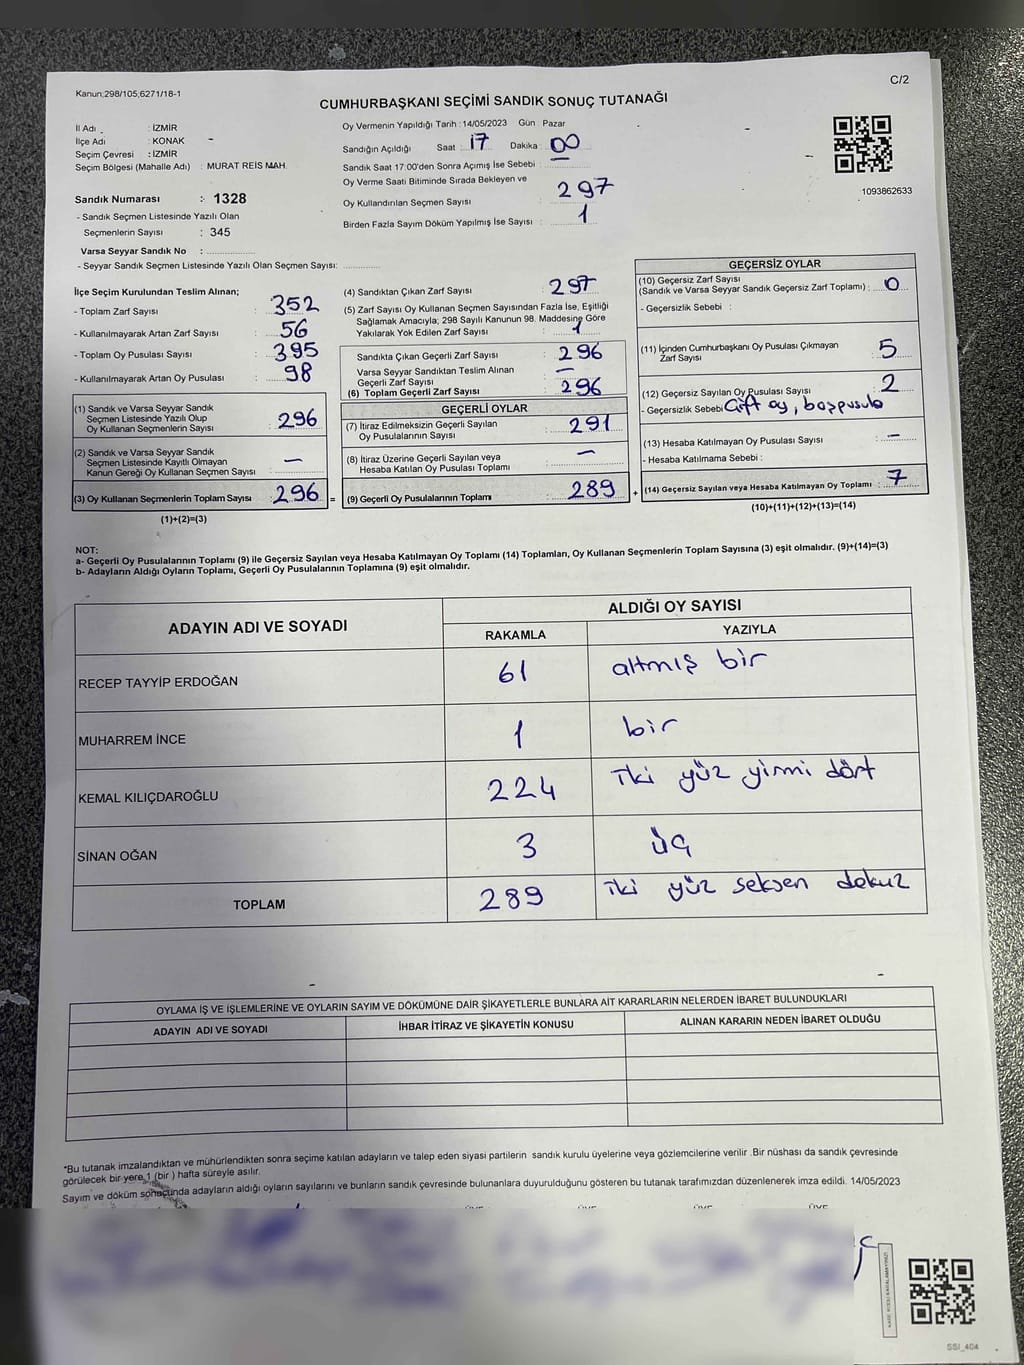 C/2
Kanun:298/105;6271/18-1
CUMHURBAŞKANI SEÇİMİ SANDIK SONUÇ TUTANAĞI
İl Adı : İZMİR
İlçe Adı : KONAK
Seçim Çevresi : İZMİR
Seçim Bölgesi (Mahalle Adı) : MURAT REİS MAH.
Sandık Numarası : 1328
- Sandık Seçmen Listesinde Yazılı Olan
Seçmenlerin Sayısı : 345
Varsa Seyyar Sandık No :
- Seyyar Sandık Seçmen Listesinde Yazılı Olan Seçmen Sayısı:
Oy Vermenin Yapıldığı Tarih : 14/05/2023 Gün : Pazar
Sandığın Açıldığı Saat : 17 Dakika : 00
Sandık Saat 17:00'den Sonra Açımış İse Sebebi :
Oy Verme Saati Bitiminde Sırada Bekleyen ve
Oy Kullandırılan Seçmen Sayısı : 297
Birden Fazla Sayım Döküm Yapılmış İse Sayısı : 1
1093862633
İlçe Seçim Kurulundan Teslim Alınan;
- Toplam Zarf Sayısı : 352
- Kullanılmayarak Artan Zarf Sayısı : 56
- Toplam Oy Pusulası Sayısı : 395
- Kullanılmayarak Artan Oy Pusulası : 98
(1) Sandık ve Varsa Seyyar Sandık
Seçmen Listesinde Yazılı Olup
Oy Kullanan Seçmenlerin Sayısı : 296
(2) Sandık ve Varsa Seyyar Sandık
Seçmen Listesinde Kayıtlı Olmayan
Kanun Gereği Oy Kullanan Seçmen Sayısı : —
(3) Oy Kullanan Seçmenlerin Toplam Sayısı : 296 =
(1)+(2)=(3)
(4) Sandıktan Çıkan Zarf Sayısı : 297
(5) Zarf Sayısı Oy Kullanan Seçmen Sayısından Fazla İse, Eşitliği
Sağlamak Amacıyla; 298 Sayılı Kanunun 98. Maddesine Göre
Yakılarak Yok Edilen Zarf Sayısı : 1
Sandıkta Çıkan Geçerli Zarf Sayısı : 296
Varsa Seyyar Sandıktan Teslim Alınan
Geçerli Zarf Sayısı : —
(6) Toplam Geçerli Zarf Sayısı : 296
GEÇERLİ OYLAR
(7) İtiraz Edilmeksizin Geçerli Sayılan
Oy Pusulalarının Sayısı : 291
(8) İtiraz Üzerine Geçerli Sayılan veya
Hesaba Katılan Oy Pusulası Toplamı : —
(9) Geçerli Oy Pusulalarının Toplamı : 289 +
GEÇERSİZ OYLAR
(10) Geçersiz Zarf Sayısı
(Sandık ve Varsa Seyyar Sandık Geçersiz Zarf Toplamı) : 0
- Geçersizlik Sebebi :
(11) İçinden Cumhurbaşkanı Oy Pusulası Çıkmayan
Zarf Sayısı : 5
(12) Geçersiz Sayılan Oy Pusulası Sayısı : 2
- Geçersizlik Sebebi Çift oy, boş pusula
(13) Hesaba Katılmayan Oy Pusulası Sayısı : —
- Hesaba Katılmama Sebebi :
(14) Geçersiz Sayılan veya Hesaba Katılmayan Oy Toplamı : 7
(10)+(11)+(12)+(13)=(14)
NOT:
a- Geçerli Oy Pusulalarının Toplamı (9) ile Geçersiz Sayılan veya Hesaba Katılmayan Oy Toplamı (14) Toplamları, Oy Kullanan Seçmenlerin Toplam Sayısına (3) eşit olmalıdır. (9)+(14)=(3)
b- Adayların Aldığı Oyların Toplamı, Geçerli Oy Pusulalarının Toplamına (9) eşit olmalıdır.
ADAYIN ADI VE SOYADI ALDIĞI OY SAYISI
RAKAMLA YAZIYLA
RECEP TAYYİP ERDOĞAN 61 altmış bir
MUHARREM İNCE 1 bir
KEMAL KILIÇDAROĞLU 224 iki yüz yirmi dört
SİNAN OĞAN 3 üç
TOPLAM 289 iki yüz seksen dokuz
OYLAMA İŞ VE İŞLEMLERİNE VE OYLARIN SAYIM VE DÖKÜMÜNE DAİR ŞİKAYETLERLE BUNLARA AİT KARARLARIN NELERDEN İBARET BULUNDUKLARI
ADAYIN ADI VE SOYADI İHBAR İTİRAZ VE ŞİKAYETİN KONUSU ALINAN KARARIN NEDEN İBARET OLDUĞU
*Bu tutanak imzalandıktan ve mühürlendikten sonra seçime katılan adayların ve talep eden siyasi partilerin sandık kurulu üyelerine veya gözlemcilerine verilir .Bir nüshası da sandık çevresinde
görülecek bir yere 1 (bir ) hafta süreyle asılır.
Sayım ve döküm sonucunda adayların aldığı oyların sayılarını ve bunların sandık çevresinde bulunanlara duyurulduğunu gösteren bu tutanak tarafımızdan düzenlenerek imza edildi. 14/05/2023
SSI_404